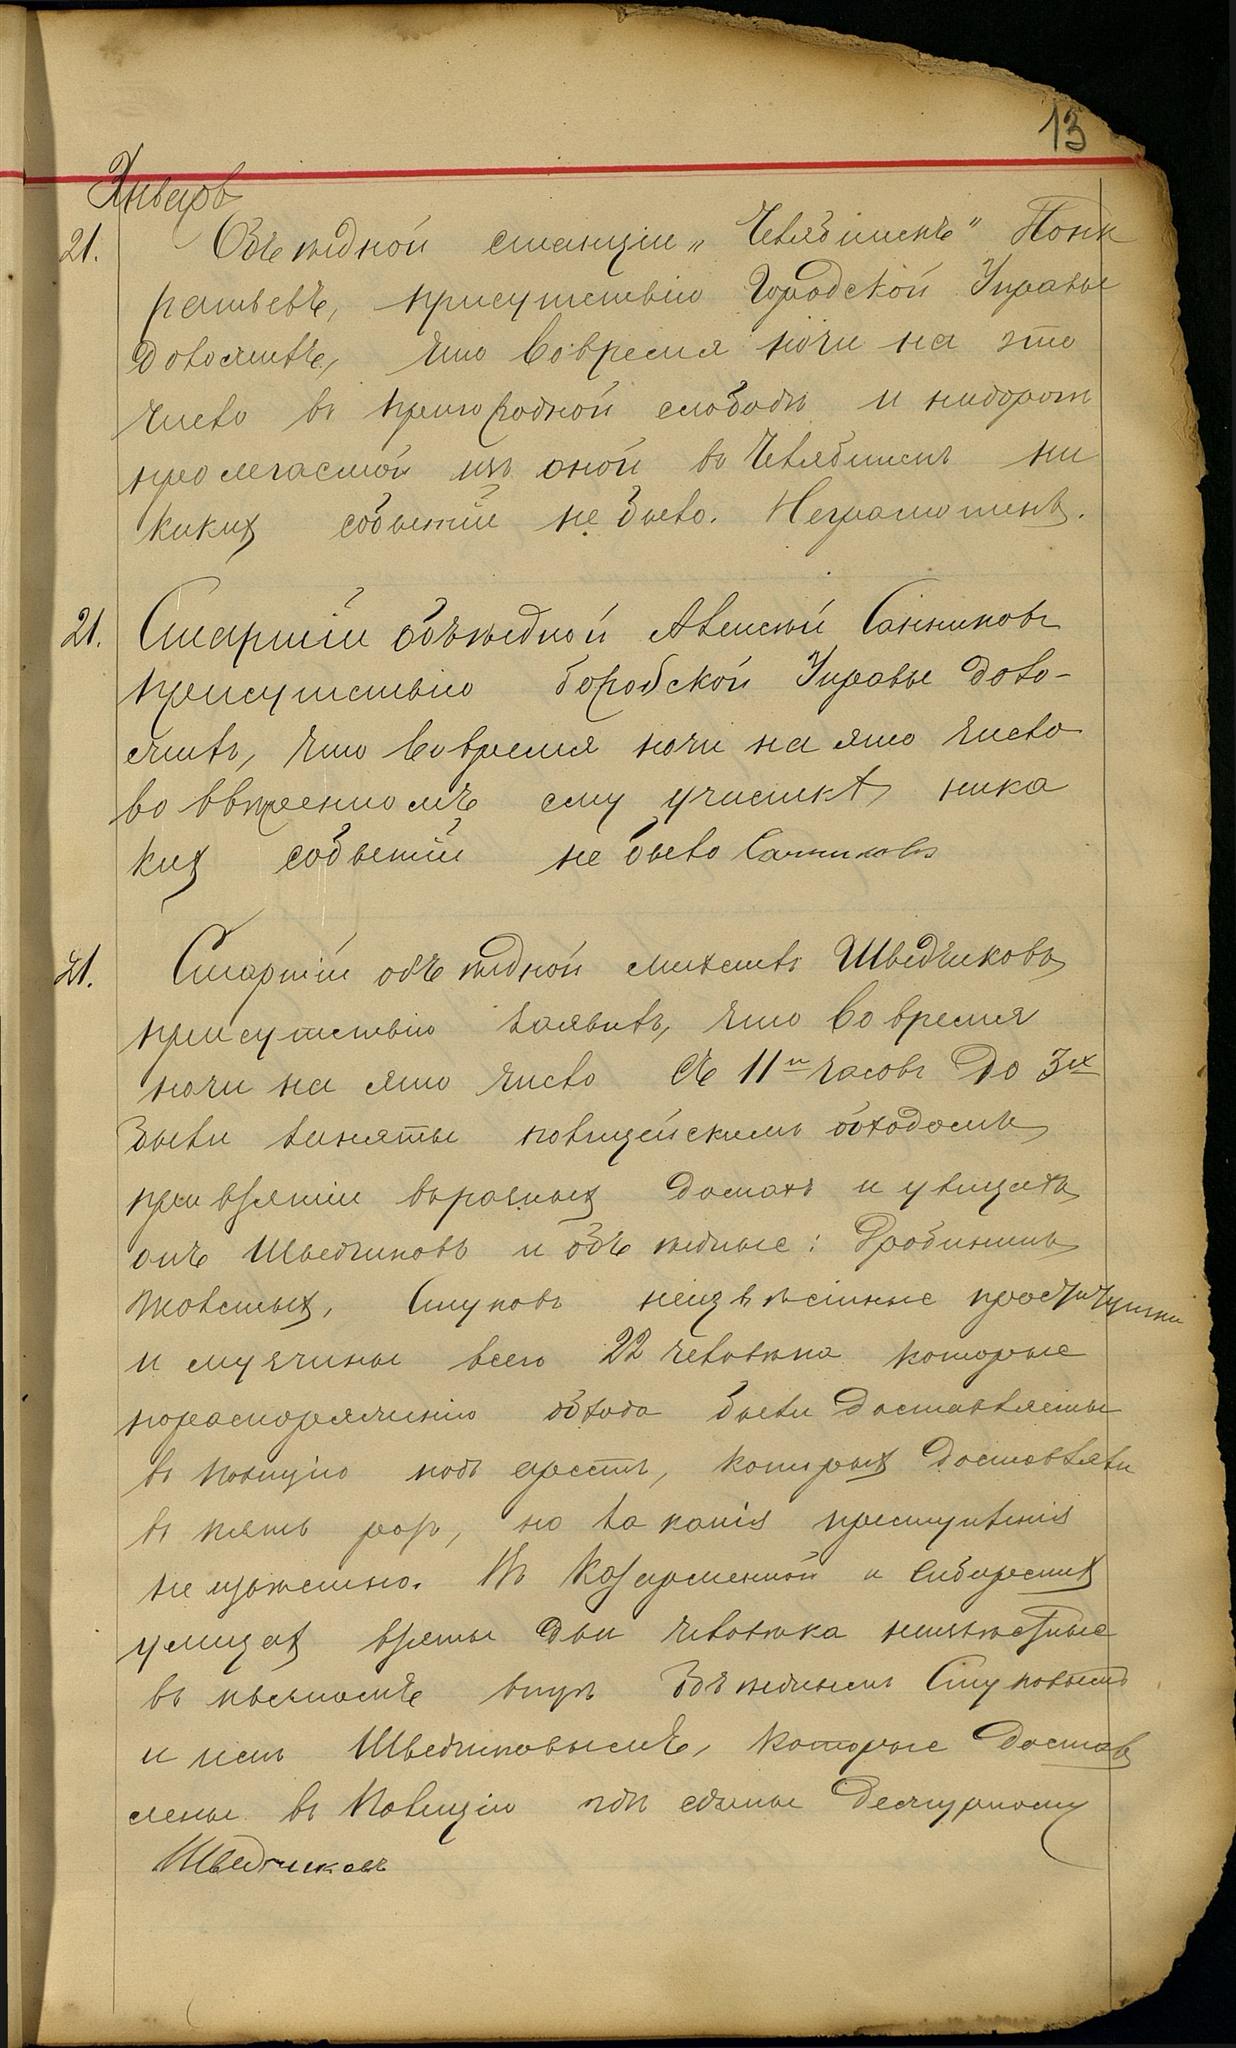 13
Январь
21. Объѣздной станціи „Челябинскъ" Понк
ратьевъ, присутствію Городской Управы
доложилъ, что вовремя ночи на это
число въ пригородной слободѣ и надорогѣ
пролегаемой изъ оной въ Челябинскъ ни
какихъ событій не было. Неграмотенъ.
21. Старшій объѣздной Алексѣй Санниковъ
присутствію Городской Управы доло-
жилъ, что вовремя ночи на это число
во ввѣренномъ ему участкѣ ника
кихъ событій не было Санниковъ
21. Старшій объѣздной Михаилъ Шведчиковъ
присутствію заявилъ, что во время
ночи на это число съ 11и часовъ до 3хъ
были заняты полицейскимъ обходомъ
при взятіи въ разныхъ домахъ и улицахъ
онъ Шведчиковъ и объѣздные: Дробининъ
Толстыхъ, Стуковъ неизвѣстные проститутки
и мущины всего 22 человѣка которые
пораспоряженію обхода были доставляемы
въ полицію подъ арестъ, которыхъ доставляли
въ пять разъ, но за какія преступленія
не изъяснено. Въ Казарменной и Сибирскихъ
улицахъ взяты два человѣка неизвѣстные
въ пьяномъ видѣ Объѣзднымъ Стуковымъ
и имъ Шведчиковымъ, которые достав
лены въ Полицію гдѣ сданы дежурному
Шведчиковъ